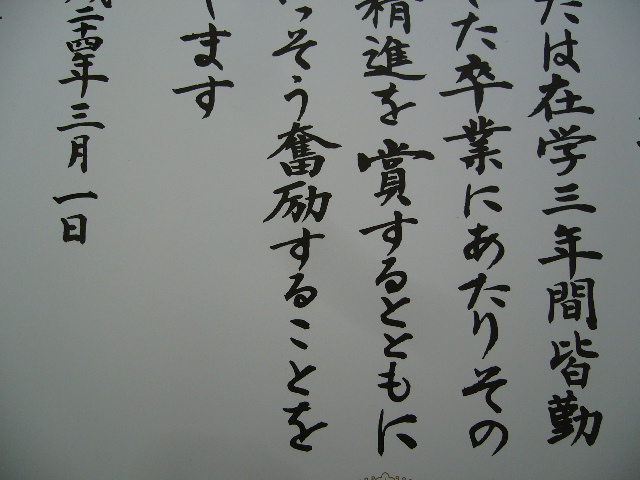 たは在学三年間皆勤
た卒業にあたりその
精進を賞するとともに
っそう奮励することを
します
成二十四年三月一日